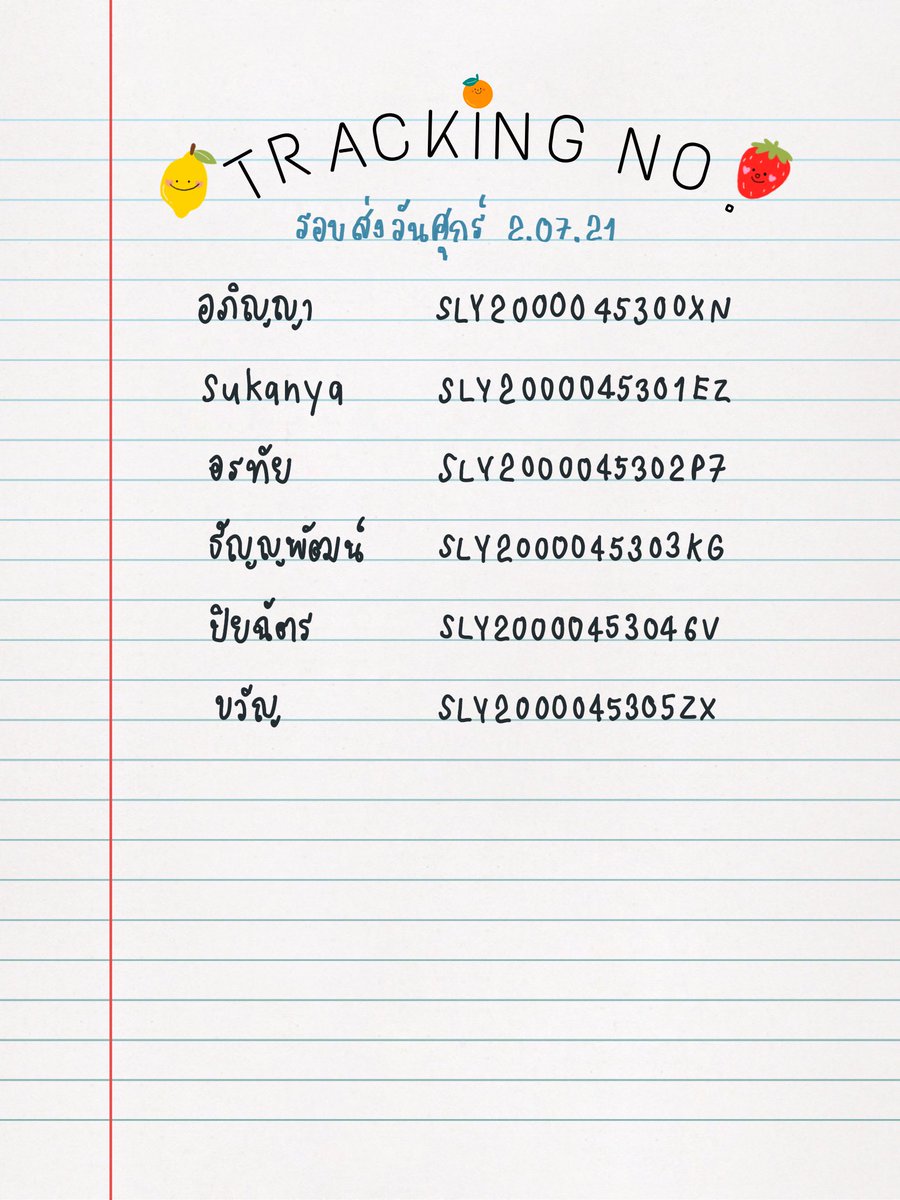 TRACKING NO.
รอบส่งวันศุกร์ 2.07.21
อภิญญา SLY2000045300XN
Sukanya SLY2000045301EZ
อรทัย SLY2000045302P7
ธัญญพัฒน์ SLY2000045303KG
ปิยฉัตร SLY20000453046V
ขวัญ SLY2000045305ZX